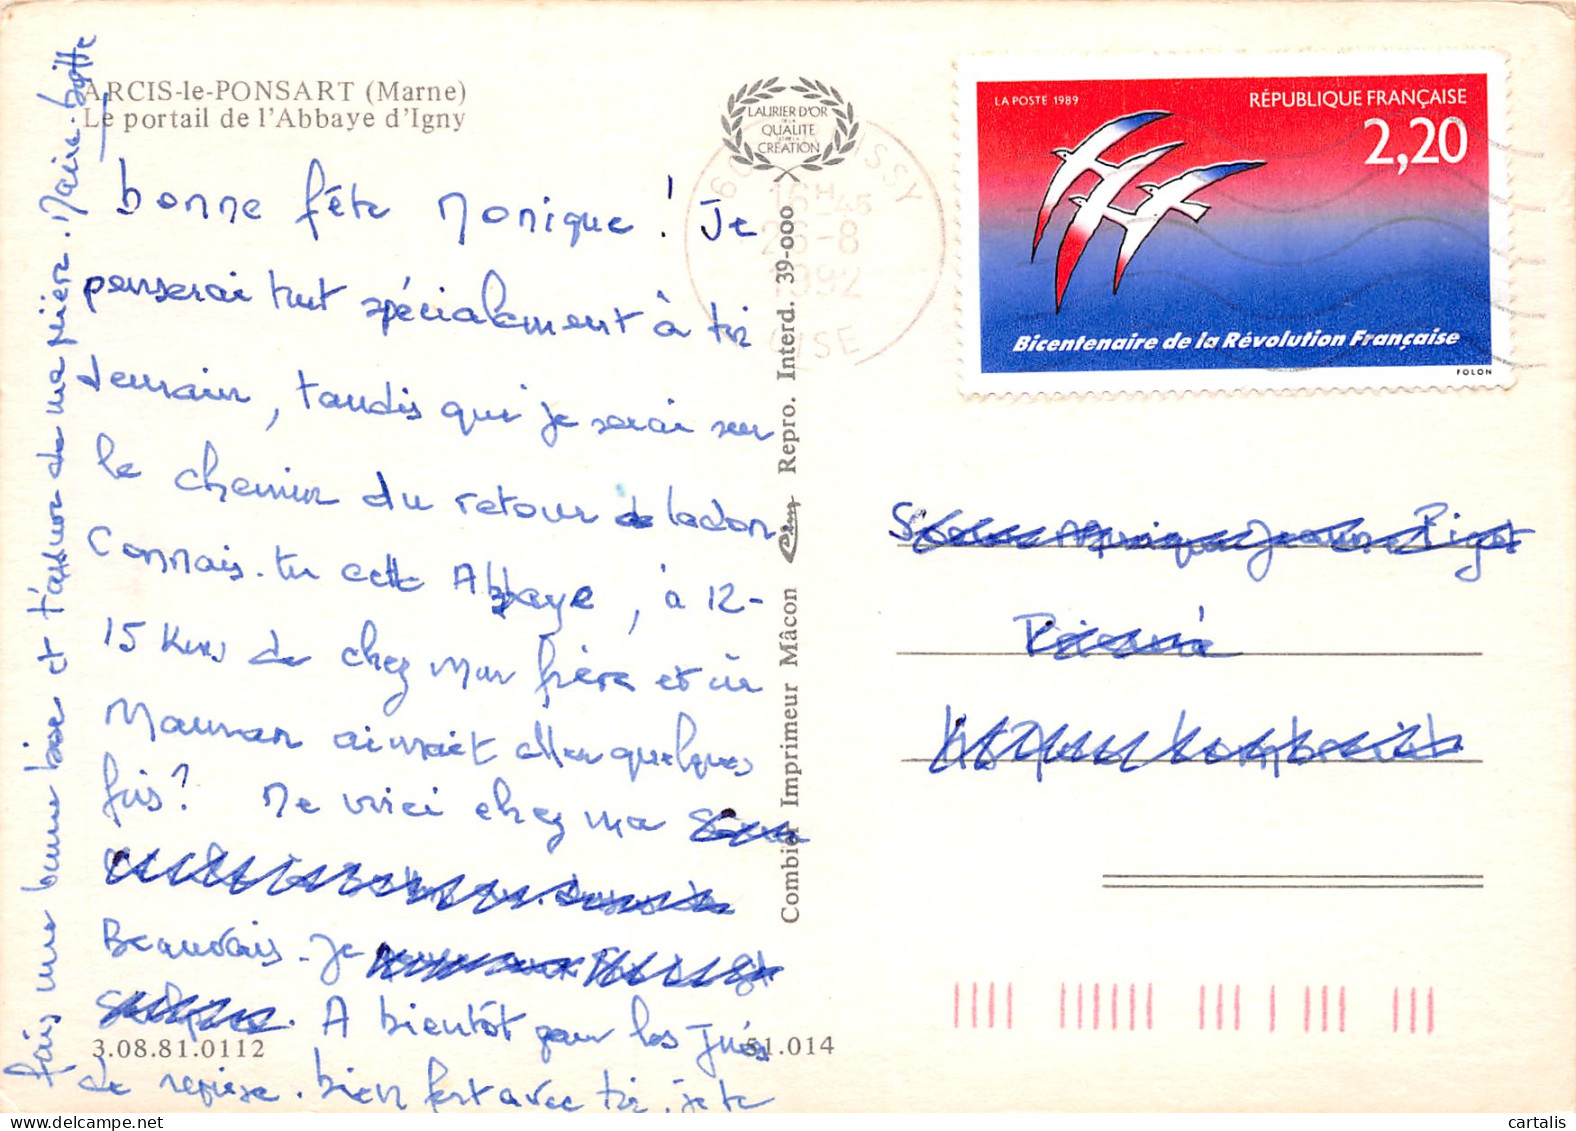 ARCIS-le-PONSART (Marne)
Le portail de l'Abbaye d'Igny
bonne fête Monique ! Je
penserai tout spécialement à toi
demain, tandis que je serai sur
le chemin du retour de Ladon
Connais-tu cette Abbaye, à 12-
15 Kms de chez mon frère et où
Maman aimait aller quelques
fois? Me voici chez ma
Beauvais. Je
. A bientôt pour les
de reprise. bien fort avec toi. je te
fais une bonne bise et t'assure de ma prière. Marie-Brigitte
3.08.81.0112
51.014
LAURIER D'OR
DE LA
QUALITE
CREATION
Combier Imprimeur Mâcon Repro. Interd. 39-000
16H45
26-8
1992
OISE
LA POSTE 1989
RÉPUBLIQUE FRANÇAISE
2,20
Bicentenaire de la Révolution Française
FOLON
cartalis